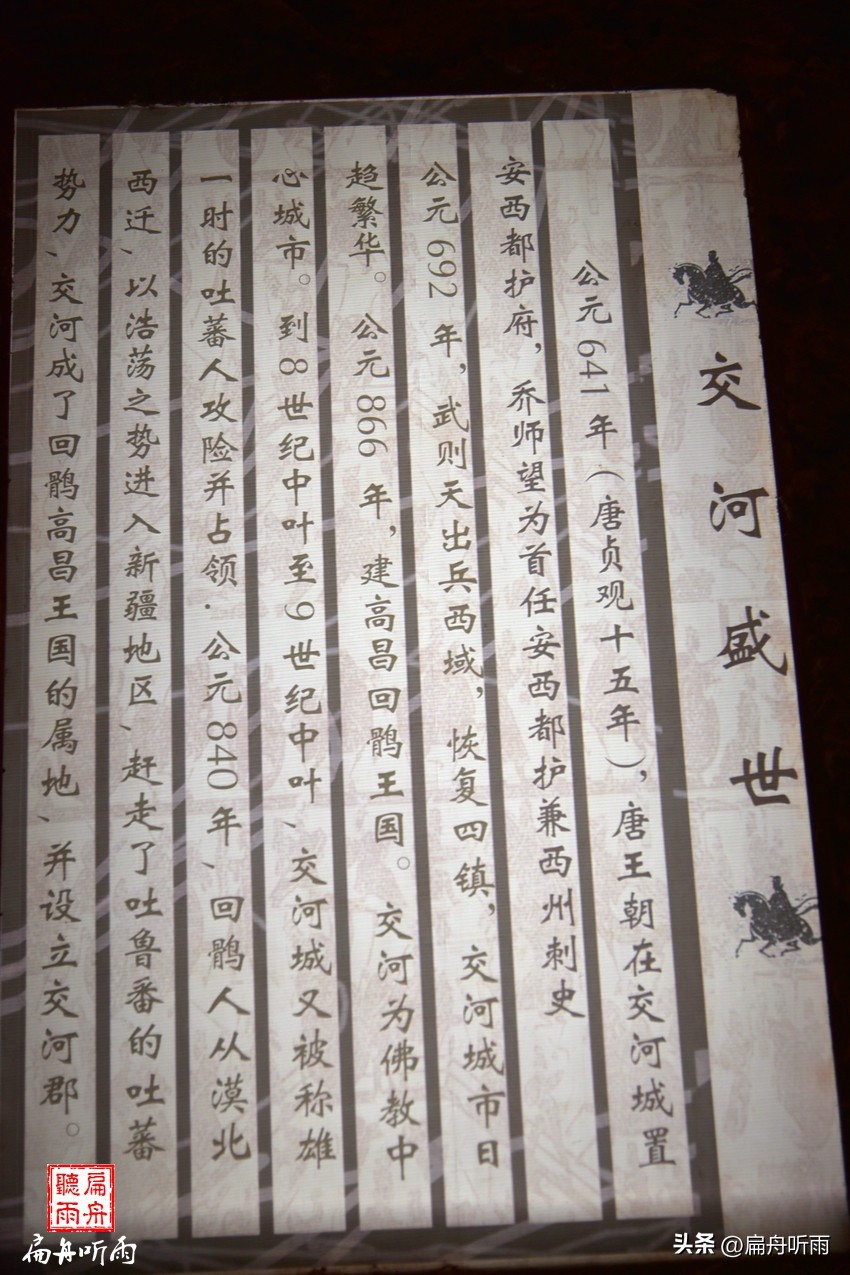 交河盛世
公元641年（唐贞观十五年），唐王朝在交河城置
安西都护府，乔师望为首任安西都护兼西州刺史
公元692年，武则天出兵西域，恢复四镇，交河城市日
趋繁华。公元866年，建高昌回鹘王国。交河为佛教中
心城市。到8世纪中叶至9世纪中叶、交河城又被称雄
一时的吐蕃人攻险并占领．公元840年、回鹘人从漠北
西迁、以浩荡之势进入新疆地区、赶走了吐鲁番的吐蕃
势力、交河成了回鹘高昌王国的属地、并设立交河郡。
扁舟聽雨
扁舟听雨
头条 @扁舟听雨